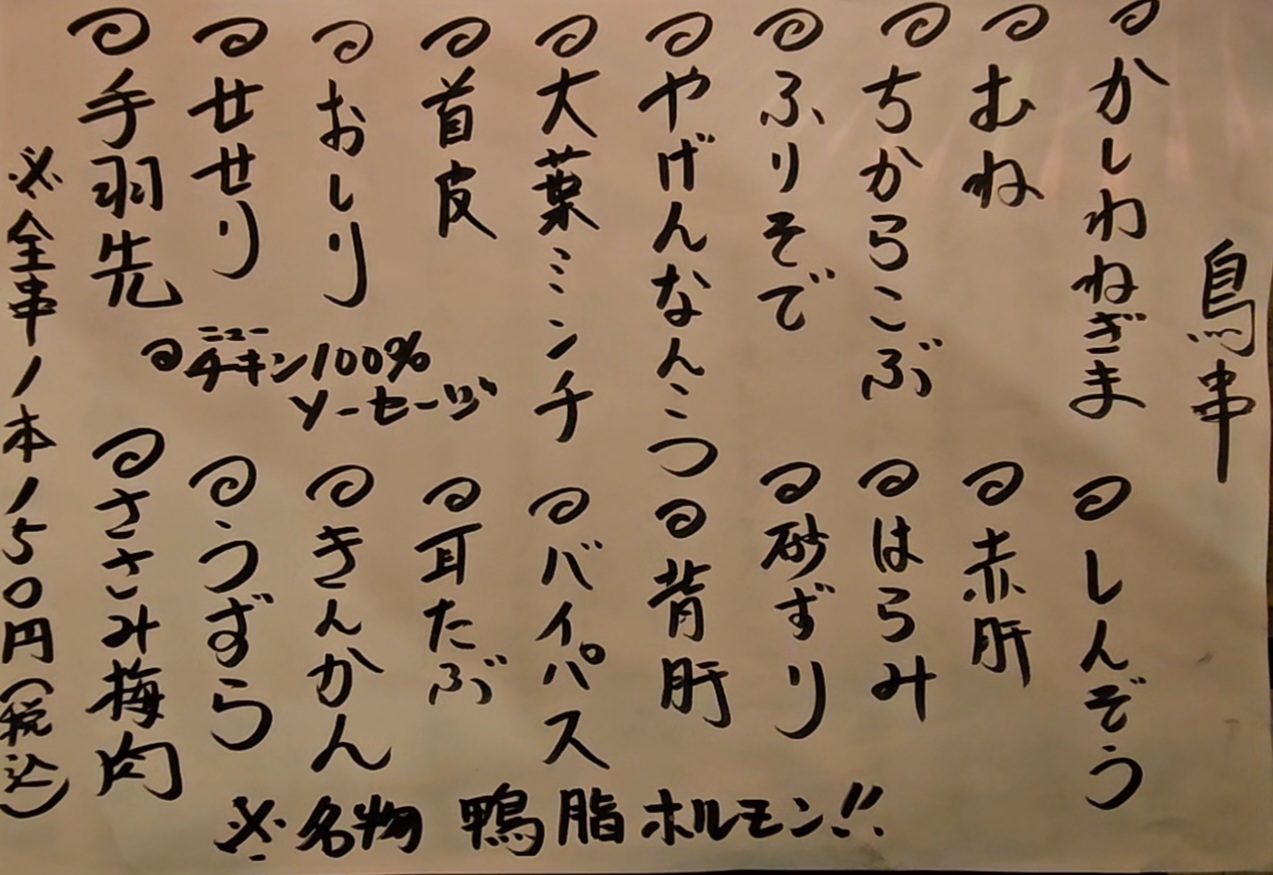 鳥串
かしわねぎま
むね
ちからこぶ
ふりそで
やげんなんこつ
大葉ミンチ
首皮
おしり
せせり
手羽先
ニュー
チキン100%
ソーセージ
しんぞう
赤肝
はらみ
砂ずり
背肝
バイパス
耳たぶ
きんかん
うずら
ささみ梅肉
※全串1本150円(税込)
※名物 鴨脂ホルモン!!